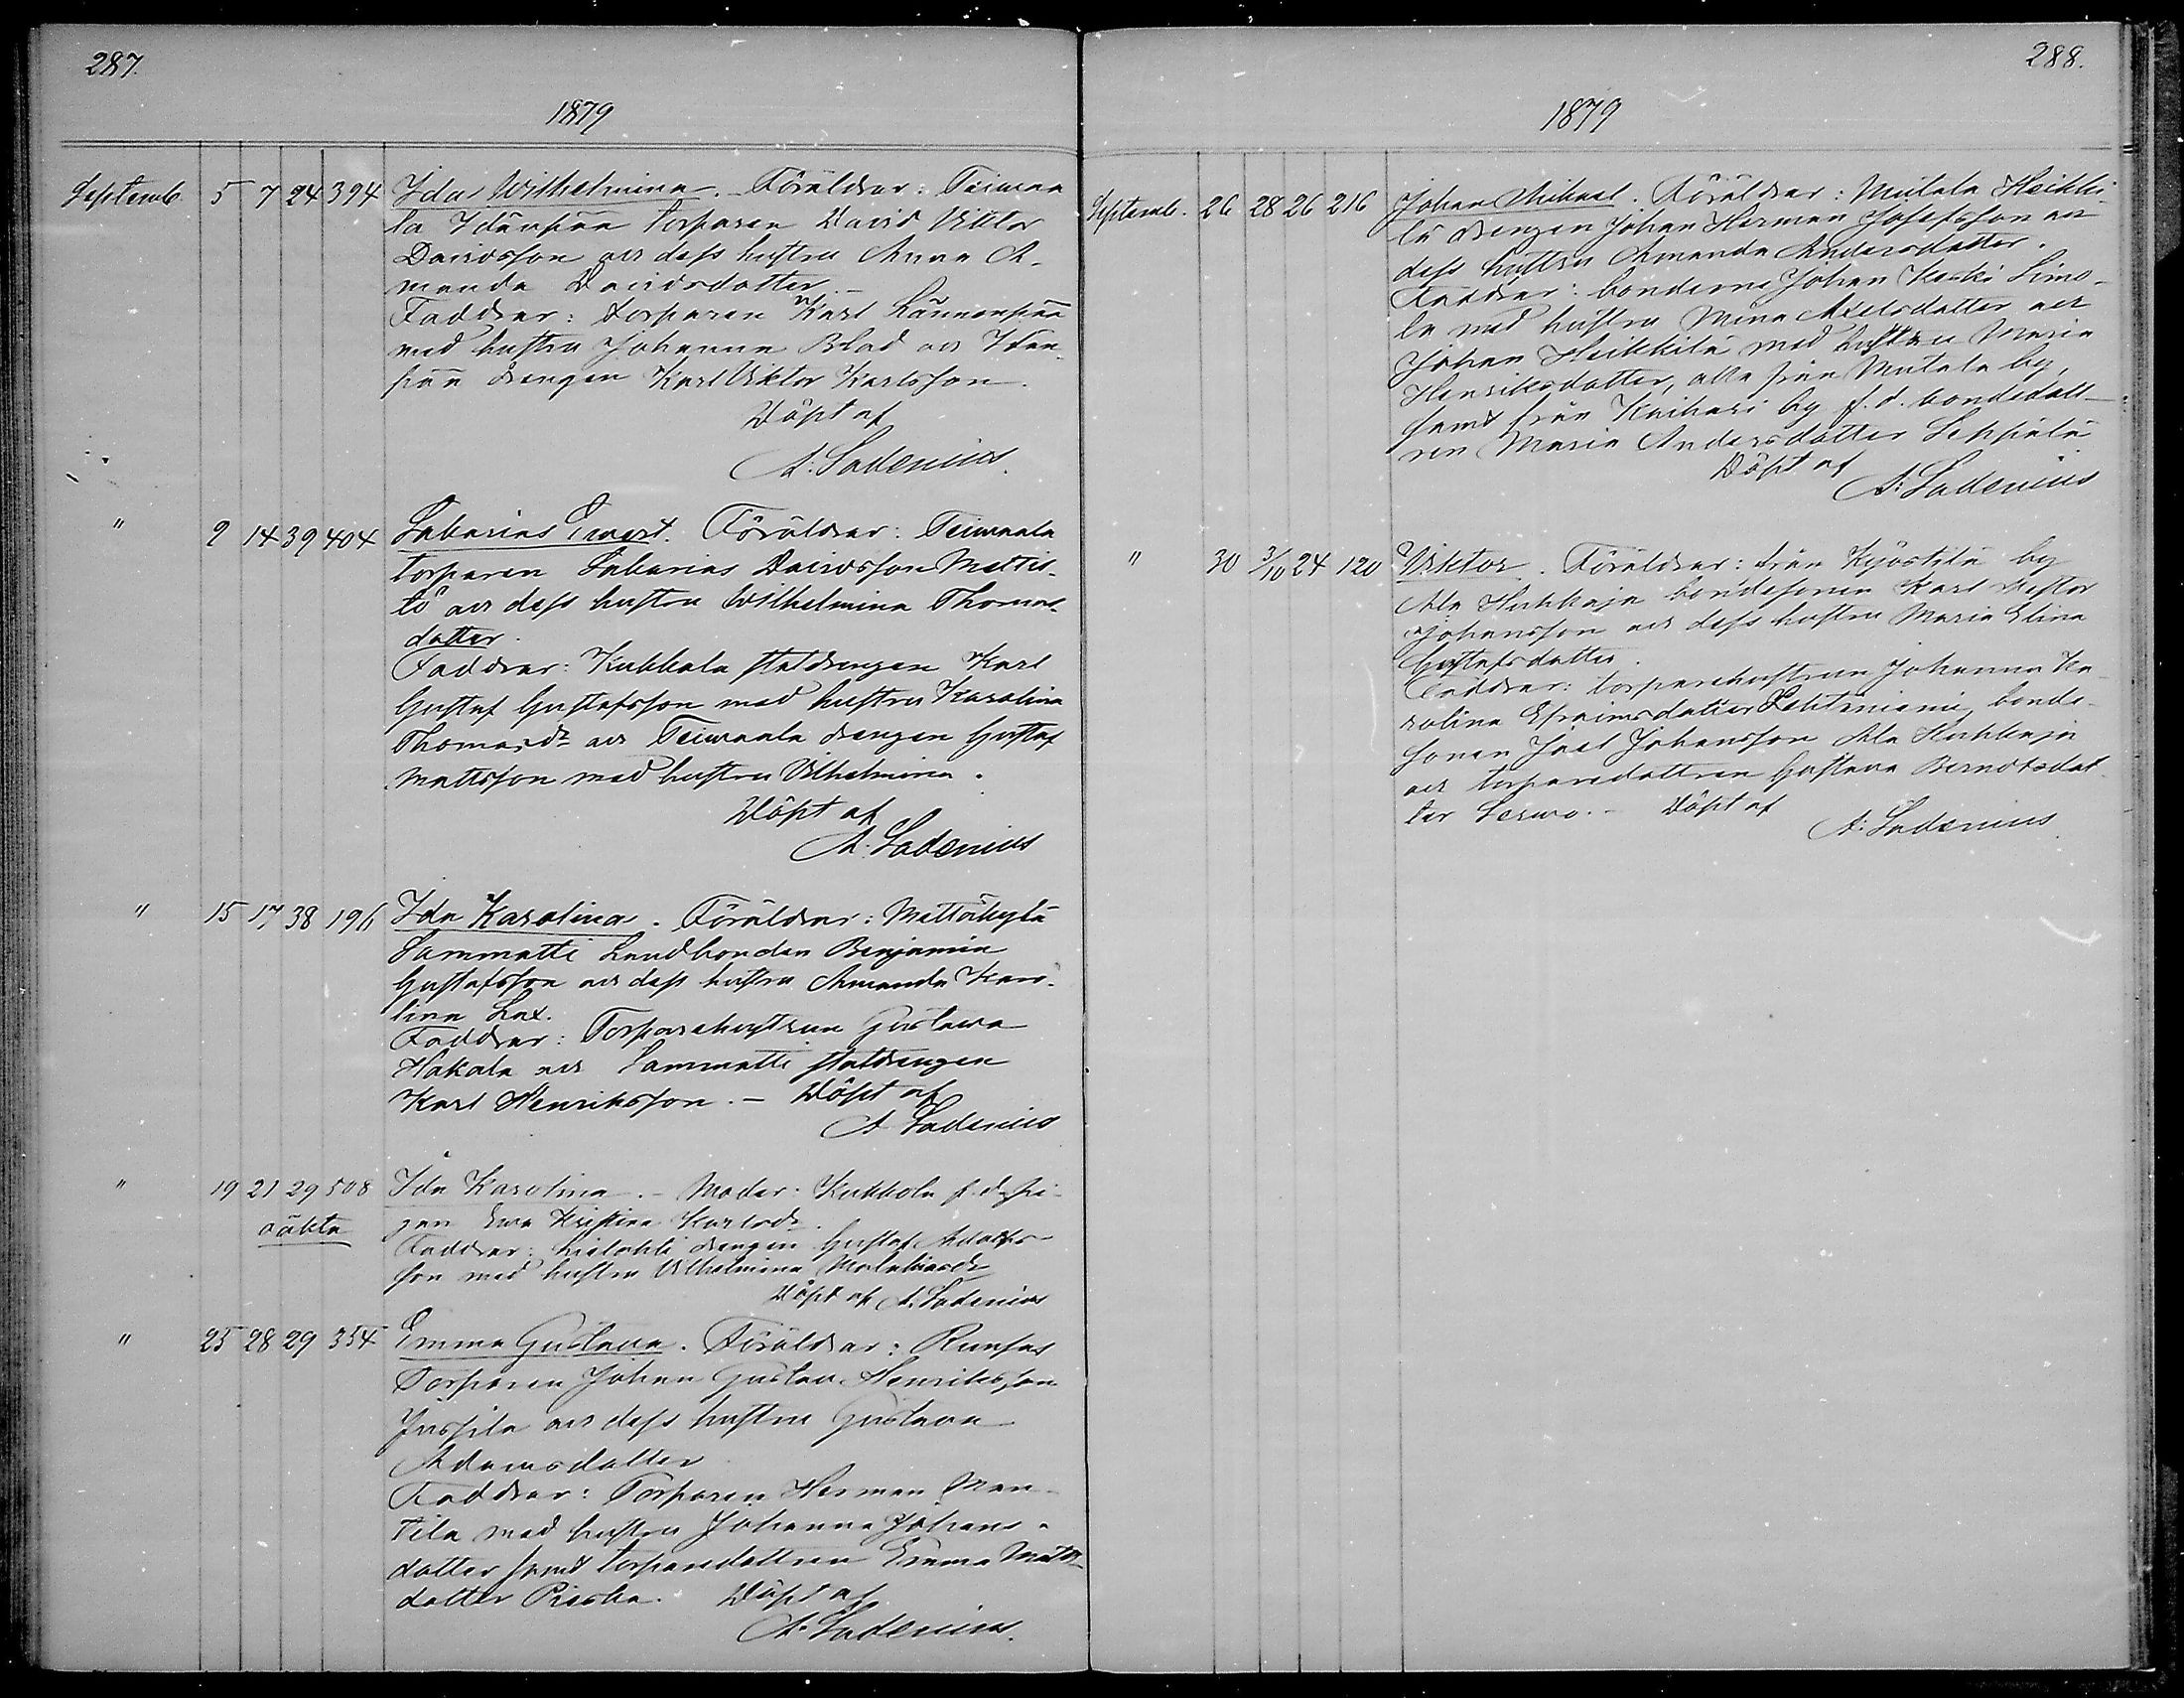 287.
1879
Septemb. 5 7 24 394 Ida Wilhelmina. Föräldrar: Teimaa
la Idänpää Torparen David Viktor
Davidsson och dess hustru Anna A-
manda Davidsdotter. -
Faddrar: Torparen Karl Lännenpää
med hustru Johanna Blad och Idän-
pää drengen Karl Viktor Karlsson.
Döpt af
A. Ladenius.
" 9 14 39 404 Sakarias Evert. Föräldrar: Teimaala
torparen Sakarias Davidsson Mattis-
tö och dess hustru Wilhelmina Thomas-
dotter.
Faddrar: Kukkola statdrengen Karl
Gustaf Gustafsson med hustru Karolina
Thomasdr och Teimaala drengen Gustaf
Mattsson med hustru Vilhelmina.
Döpt af
A. Ladenius
" 15 17 38 196 Ida Karolina. Föräldrar: Mattökylä
Sammatti Landbonden Benjamin
Gustafsson och dess hustru Amanda Karo-
lina Lax.
Faddrar: Torparehustrun Gustava
Hakala och Sammatti statdrengen
Karl Henriksson. - Döpt af
A Ladenius
" 19 21 29 508 Ida Karolina. - Moder: Kukkola f. d. pi-
oäkta gan Eva Kristina Karlsdr.
Faddrar: drengen Gustaf Adolfs-
son med hustru Vilhelmina
Döpt af A. Ladenius
" 25 28 29 354 Emma Gustava. Föräldrar:
Torparen Johan Gustav Henriksson
Jussila och dess hustru Gustava
Adamsdotter
Faddrar: Torparen Herman Man-
tila med hustru Johanna Johans-
dotter samt torparedottren Emma Matts-
dotter Döpt af
A. Ladenius.
288.
1879
Septemb. 26 28 26 216 Johan Mikael. Föräldrar: Mutala Heikki-
lä drengen Johan Herman Josefsson och
dess hustru Amanda Andersdotter.
Faddrar: bönderne Johan Keski Simo-
la med hustru Mina Axelsdotter och
Johan Heikkilä med hustru Maria
Henriksdotter, alla från Mutala by,
samt från Kaihari by f. d. bondedott-
ren Maria Andersdotter Seppälä
Döpt af
A. Ladenius
" 30 3/10 24 120 Viktor. Föräldrar: från Kyöstilä by
Ala Huhkaja bondesonen Karl
Johansson och dess hustru Maria Elina
Gustafsdotter.
Faddrar: torparehustrun Johanna Ka-
rolina Efraimsdotter Lehtiniemi, bonde-
sonen Joel Johansson Ala Huhkaja
och torparedottren Gustava Berndtsdot-
ter - Döpt af
A. Ladenius